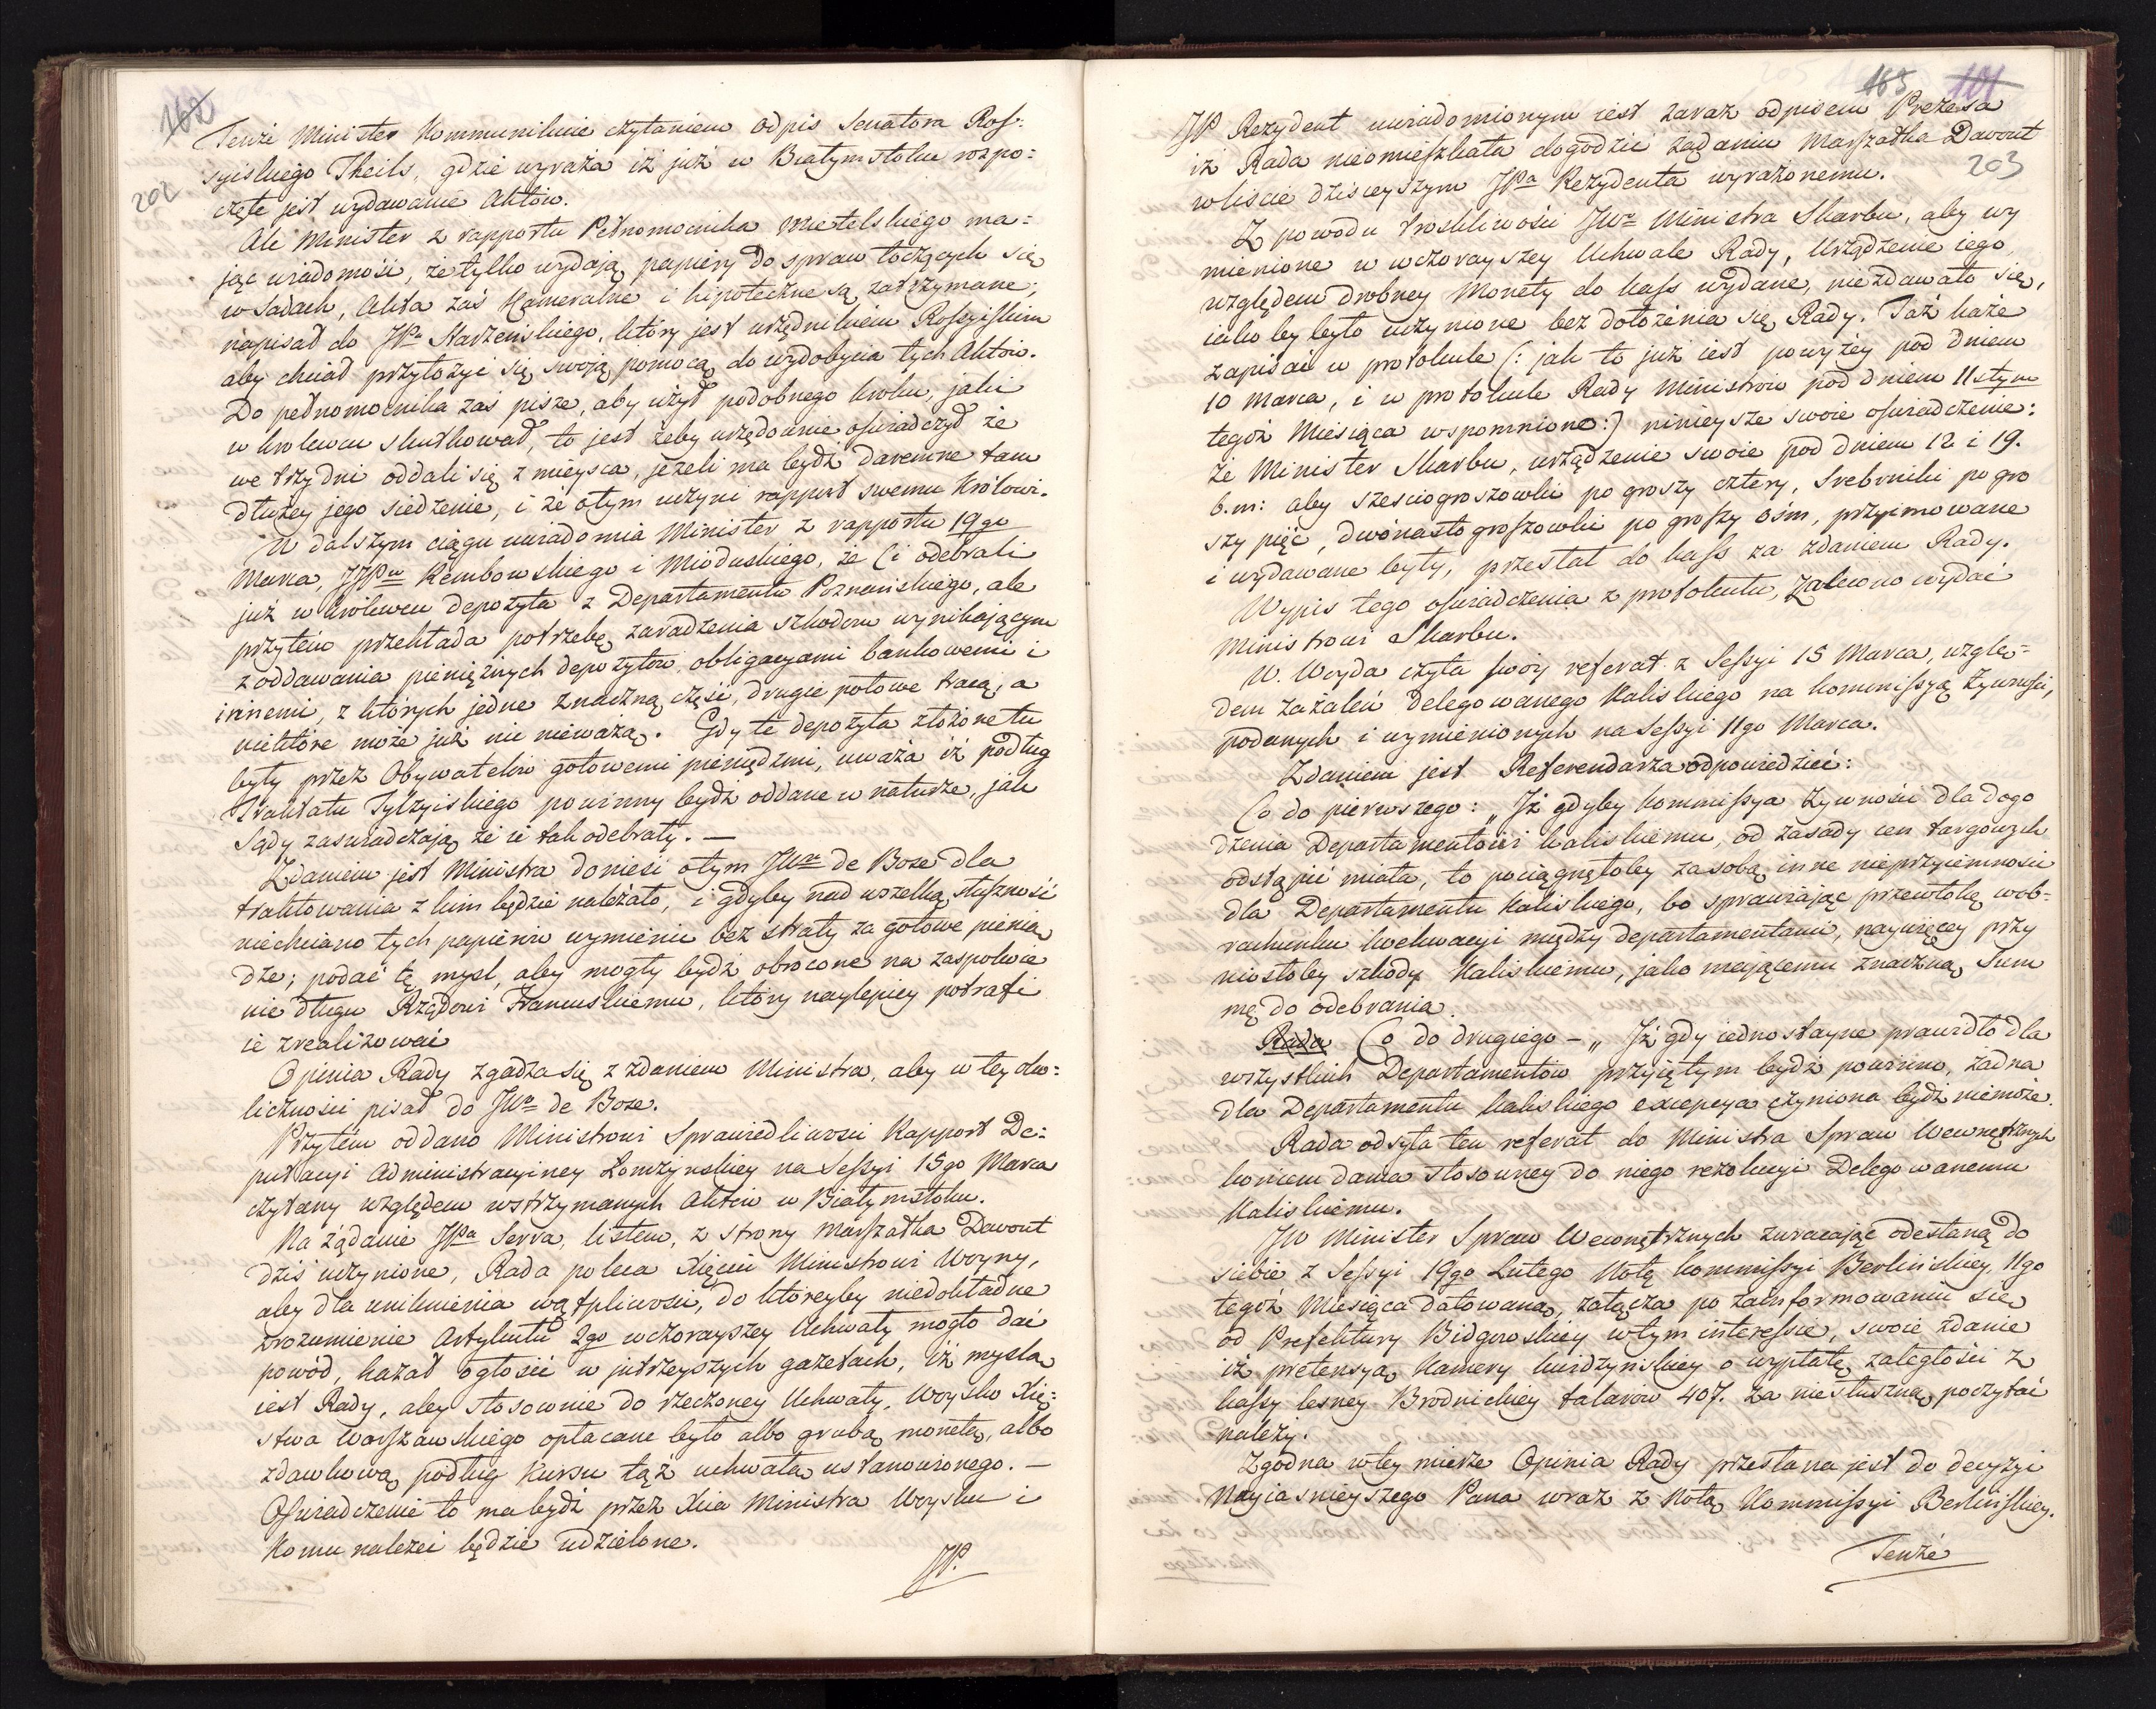 162
202
Tenże Minister Kommunikuie czytaniem odpis Senatora Ros-
syiskiego Theils, gdzie wyraża iż już w Białymstoku rozpo-
częte jest wydawanie Aktów.
Ale Minister z rapportu Pełnomocnika Mietelskiego ma-
jąc wiadomość, że tylko wydają papiery do spraw toczących się
w Sadach, Akta zaś Kameralne i hipoteczne są zatrzymane;
napisał do JPa Starzeńskiego, który jest urzędnikiem Rossyiskim
aby chciał przyłożyć się swoją pomocą do wydobycia tych Aktów.
Do pełnomocnika zaś pisze, aby użył podobnego kroku, jaki
w krolewcu skutkował, to jest żeby urzędownie oświadczył że
we trzy dni oddali się z mieysca, jeżeli ma bydź daremne tam
dłużey jego siedzenie, i że o tym uczyni rapport swemu Królowi.
W dalszym ciągu uwiadomia Minister z rapportu 19go
Marca, JJPw Rembowskiego i Mioduskiego, że Ci odebrali
już w królewcu depozyta z Departamentu Poznańskiego, ale
przytém przekłada potrzebę zaradzenia szkodom wynikającym
z oddawania pieniężnych depozytów obligacyami bankowemi i
innemi, z których jedne znaczną część, drugie połowe tracą, a
niektóre może już nic nieważą. Gdy te depozyta złożone tu
były przez Obywatelów gotowemi pieniędzmi, uważa iż podług
Traktatu Tylżyiskiego powinny bydź oddane w naturze, jak
Sądy zaswiadczają że ie tak odebrały. —
Zdaniem jest Ministra donieść o tym JWu de Bose dla
traktowania z kim będzie należało, i gdyby nad wszelką słuszność
niechciano tych papierów wymienić bez straty za gotowe pienią
dze; podać tę mysl, aby mogły bydź obrócone na zaspokoie
nie długu Rządowi Francuskiemu, który naylepiey potrafi
ie zrealizować
Opinia Rady zgadza się z zdaniem Ministra, aby w tey oko-
liczności pisał do JWo de Bose.
Przytém oddano Ministrowi Sprawiedliwości Rapport De-
putacyi Administracyiney Łomżyńskiey na Sessyi 15go Marca
czytany względem wstrzymanych Aktów w Białymstoku.
Na żądanie JPa Serra, listem, z strony Marszałka Davout
dziś uczynione, Rada poleca Xięciu Ministrowi Woyny,
aby dla uniknienia wątpliwości, do któreyby niedokładne
zrozumienie Artykułu 2go wczorayszey Uchwały mogło dać
powód, kazał ogłosić w jutrzeyszych gazetach, iż myslą
iest Rady, aby stosownie do rzeczoney Uchwały, Woysko Xię-
stwa Warszawskiego opłacane było albo grubą monetą, albo
zdawkową podług Kursu tąż uchwałą ustanowionego. —
Oświadczenie to ma bydź przez Xcia Ministra Woysku i
Komu należeć będzie udzielone.
JP.
163 101
203
JP Rezydent uwiadomionym iest zaraz odpisem Prezesa
iż Rada nieomieszkała dogodzić żądaniu Marszałka Davout
w liście dzisieyszym JPa Rezydenta wyrażonemu.
Z powodu troskliwości JWo Ministra Skarbu, aby wy
mienione w wczorayszey Uchwale Rady, Urządzenie iego
względem drobney Monety do kass wydane, niezdawało się,
iakoby było uczynione bez dołożenia się Rady. Taż każe
zapisać w protokule (: jak to już iest powyżey pod dniem
10 Marca, i w protokule Rady Ministrów pod dniem 11stym
tegoż Miesiąca wspomnione:) ninieysze swoie oświadczenie:
że Minister Skarbu, urządzenie swoie pod dniem 12 i 19.
b.m: aby szesciogroszówki po groszy cztery, Srebrniki po gro
szy pięć, dwónastogroszowki po groszy ośm, przyimowane
i wydawane były, przesłał do kass za zdaniem Rady.
Wypis tego oświadczenia z protokułu, zalecono wydać
Ministrowi Skarbu.
W. Woyda czyta swóy referat z Sessyi 15 Marca, wzglę-
dem zażaleń Delegowanego Kaliskiego na kommissyą Żywności,
podanych i wymienionych na Sessyi 11go Marca.
Zdaniem jest Referendarza odpowiedzieć:
Co do pierwszego: „Iż gdyby Kommissya Żywności dla dogo
dzenia Departamentowi kaliskiemu, od zasady cen targowych
odstąpić miała, to pociągnęłoby za sobą inne nieprzyiemności
dla Departamentu Kaliskiego, bo sprawiając przewłokę w ob-
rachunku liwidacyi między departamentami, naywięcey przy
niosłoby szkody Kaliskiemu, jako mającemu znaczną Sum
mę do odebrania.
Rada Co do drugiego — „Iż gdy iednostayne prawidło dla
wszystkich Departamentów przyiętym bydź powinno, żadna
dla Departamentu kaliskiego excepcya czyniona bydź niemoże.
Rada odsyła ten referat do Ministra Spraw Wewnętrznych
końcem dania stosowney do niego rezolucyi Delegowanemu
Kaliskiemu.
JW Minister Spraw Wewnętrznych zwracając odesłaną do
siebie z Sessyi 19go Lutego Notę Kommissyi Berlińskiey, 11go
tegóż Miesiąca datowaną, załącza po zainformowaniu się
od Prefektury Bidgoskiey w tym interessie, swoie zdanie
iż pretensyą Kamery kwidzyńskiey o wypłatę zaległości z
kassy lesney Brodnickiey talarów 407. za niesłuszną poczytać
należy.
Zgodna w tey mierze Opinia Rady przesłana jest do decyzyi
Nayiasnieyszego Pana wraz z Notą Kommissyi Berlińskiey.
Tenże